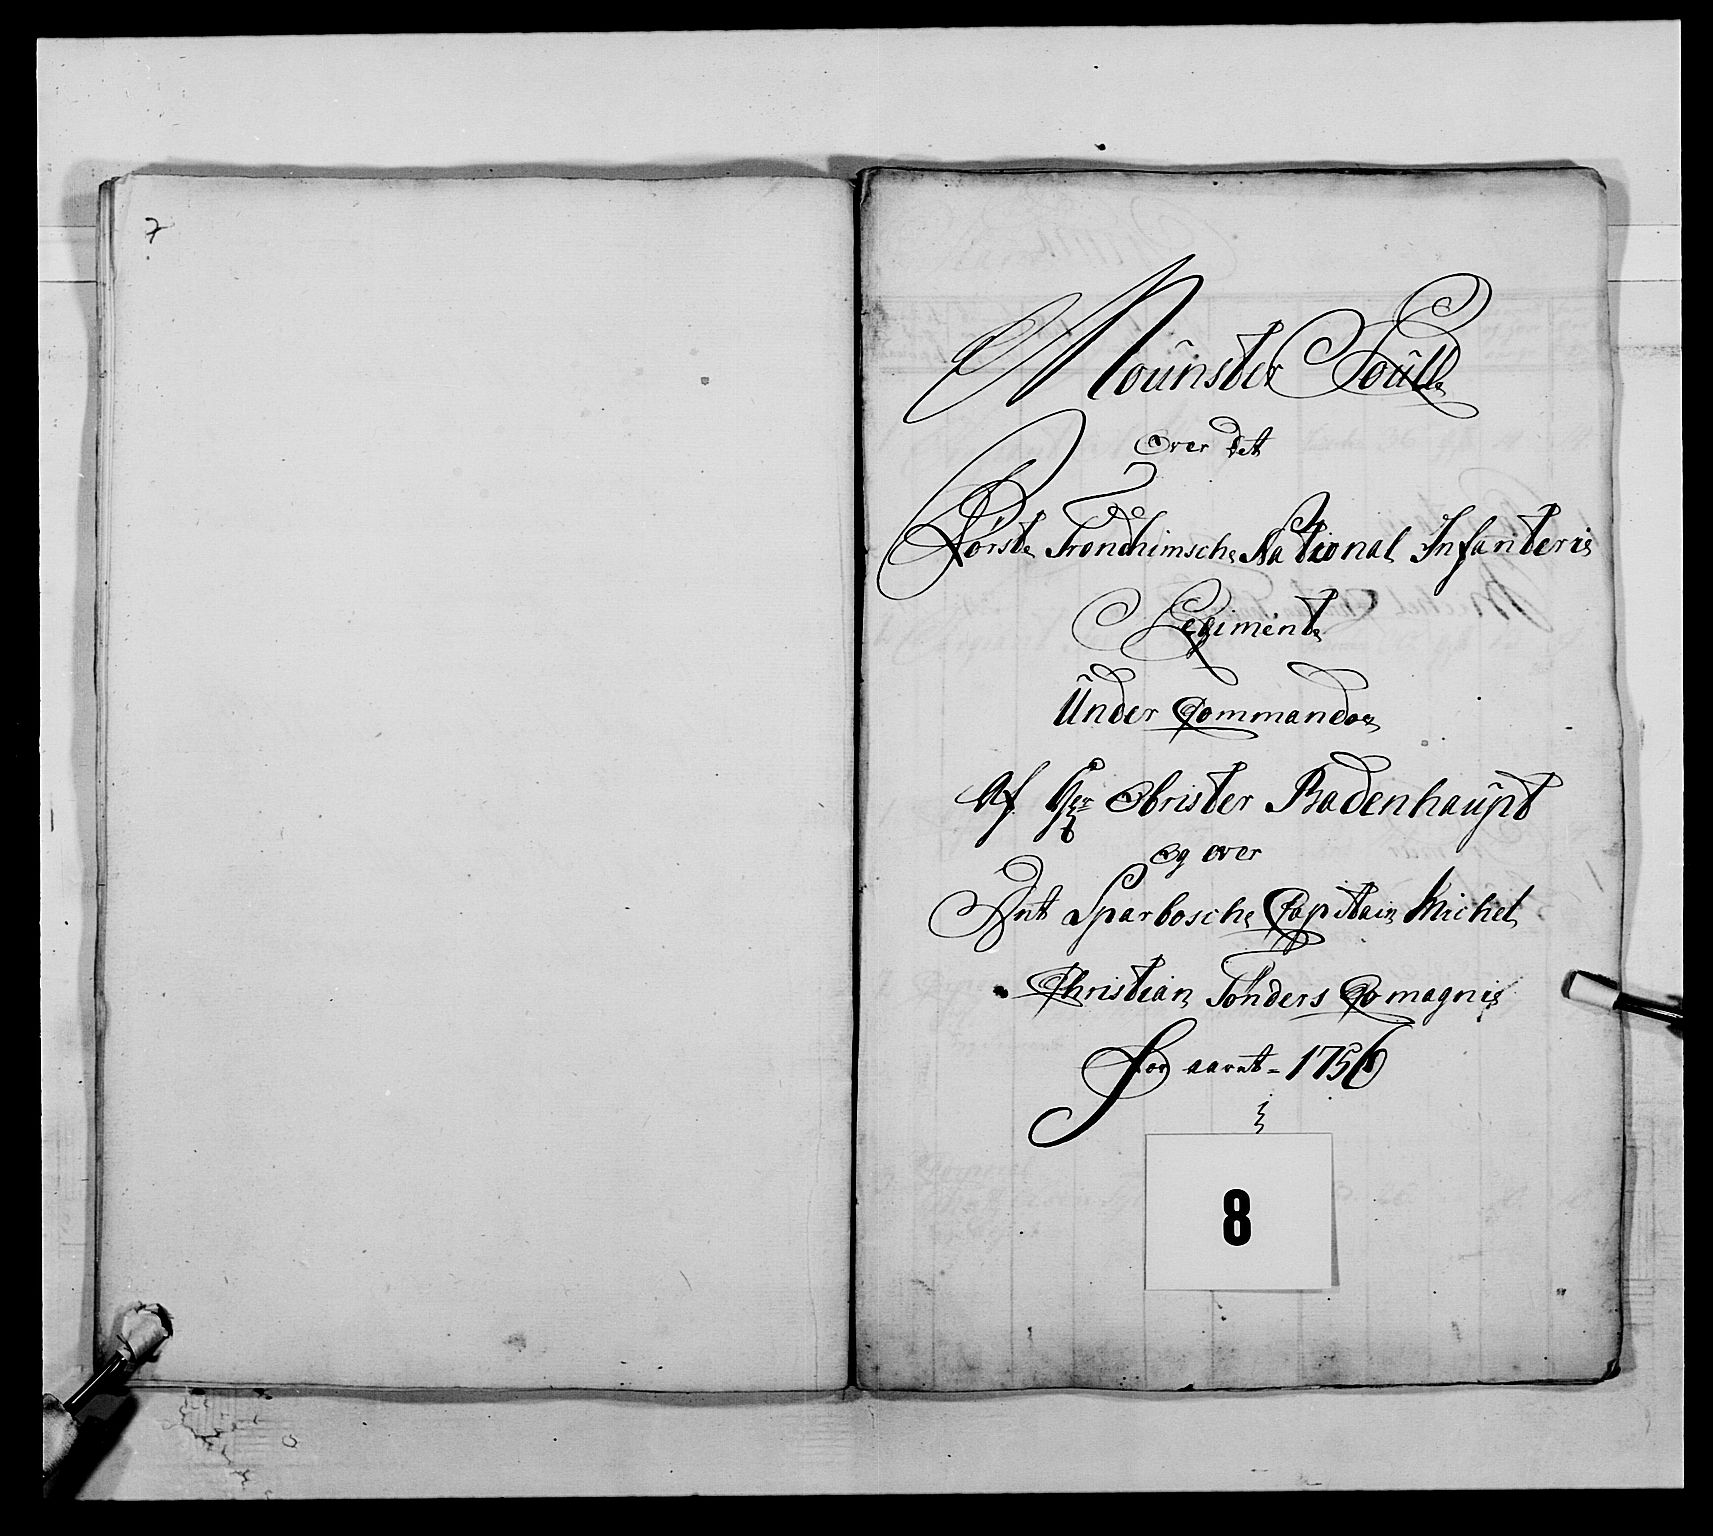 7
Moünster Roülle
Over det
Förste Trondhimsche National Infanterie
Regimente
Ünder Commando
Af Her Obrister Badenhaüpt
Og over
Det Sparbosche Capitain Michel
Christian Tönders Comagnie
For aaret - 1756
8